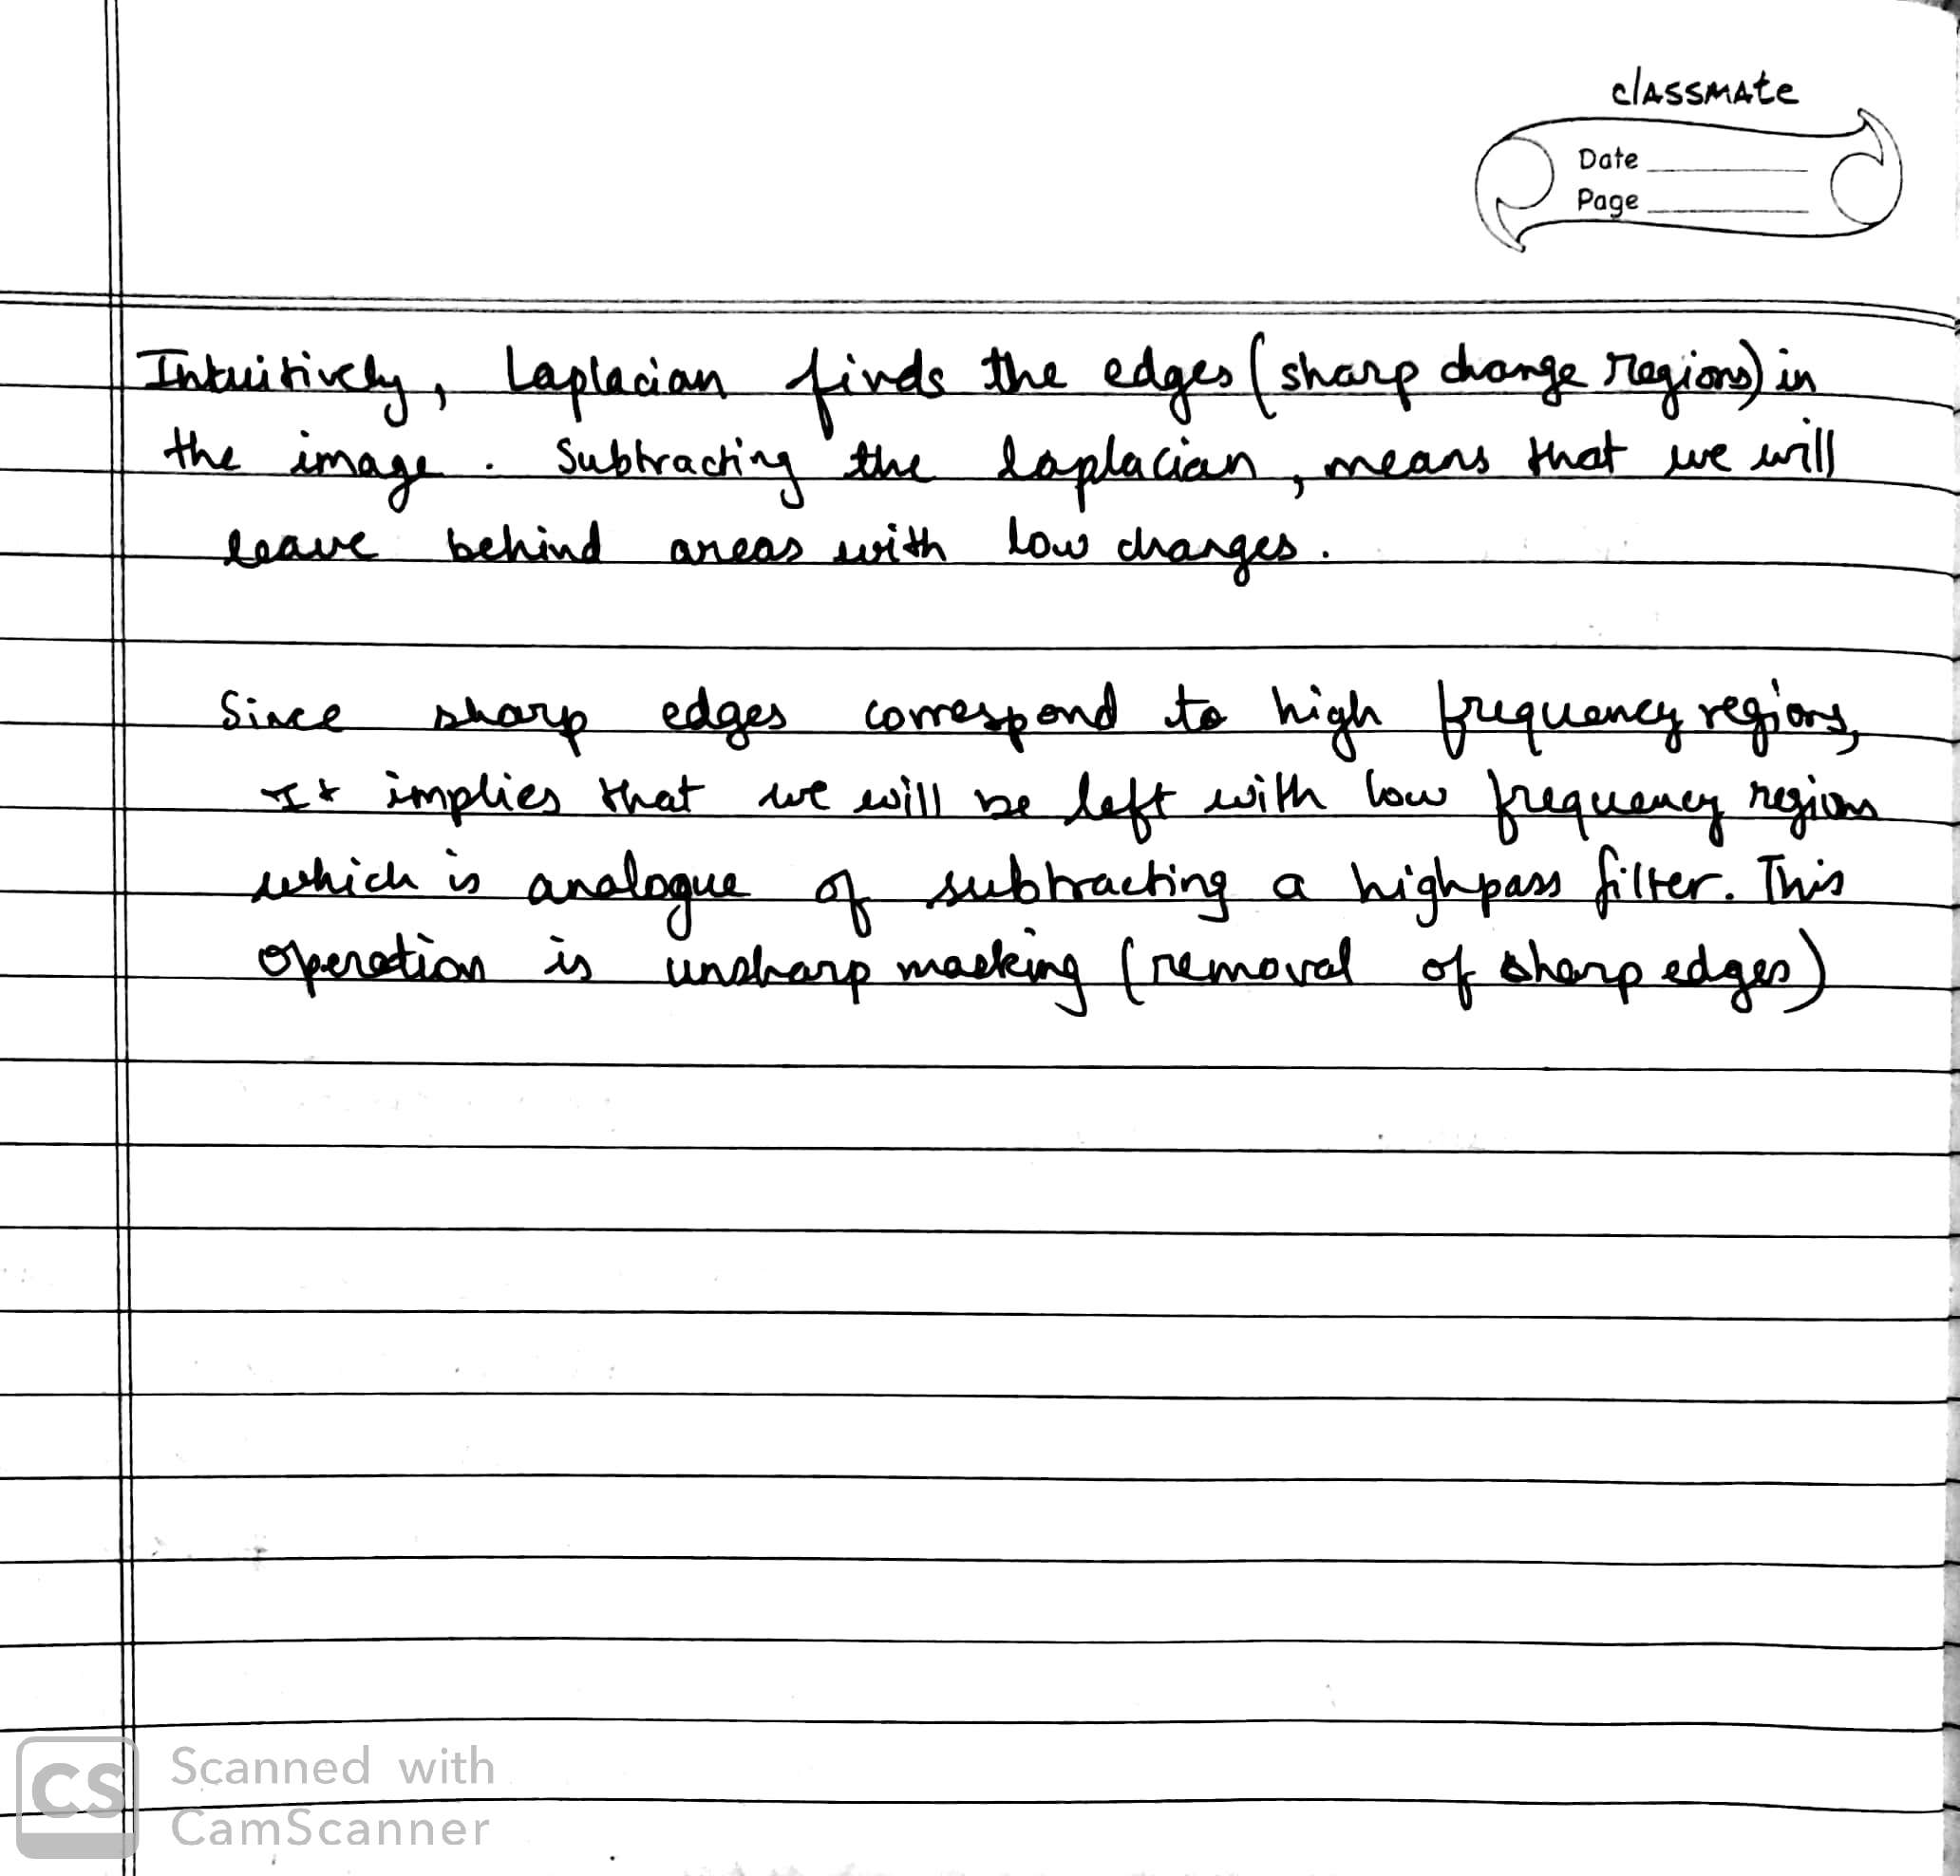 classmate
Date
Page
Intuitively, Laplacian finds the edges (sharp change regions) in
the image. Subtracting the laplacian, means that we will
leave behind areas with low changes.
Since sharp edges correspond to high frequency regions,
It implies that we will be left with low frequency regions
which is analogue of subtracting a highpass filter. This
operation is unsharp masking (removal of sharp edges)
CS Scanned with
CamScanner